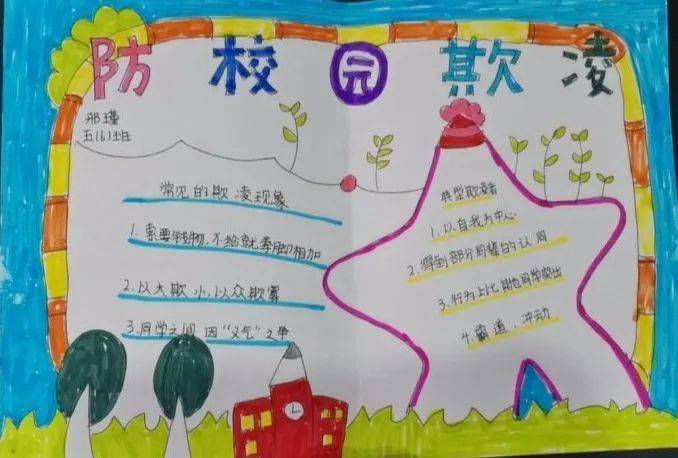 防校园欺凌
邢瑾
五(6)班
常见的欺凌现象
1.索要钱物,不给就拳脚相加
2.以大欺小,以众欺寡
3.同学之间因“义气”之争
典型欺凌者
1.以自我为中心
2.得到部分同辈的认同
3.行为上比其他同学突出
4.霸道、冲动